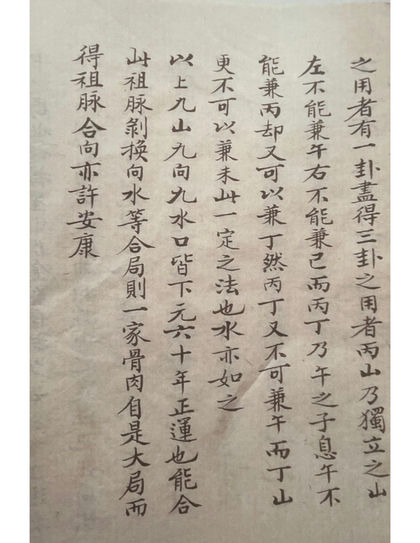 之用者有一卦盡得三卦之用者丙山乃獨立之山
左不能兼午右不能兼已而丙丁乃午之子息午不
能兼丙却又可以兼丁然丙丁又不可兼午而丁山
更不可以兼未此一定之法也水亦如之
以上九山九向九水口皆下元六十年正運也能合
此祖脉剝換向水等合局則一家骨肉自是大局而
得祖脉合向亦許安康